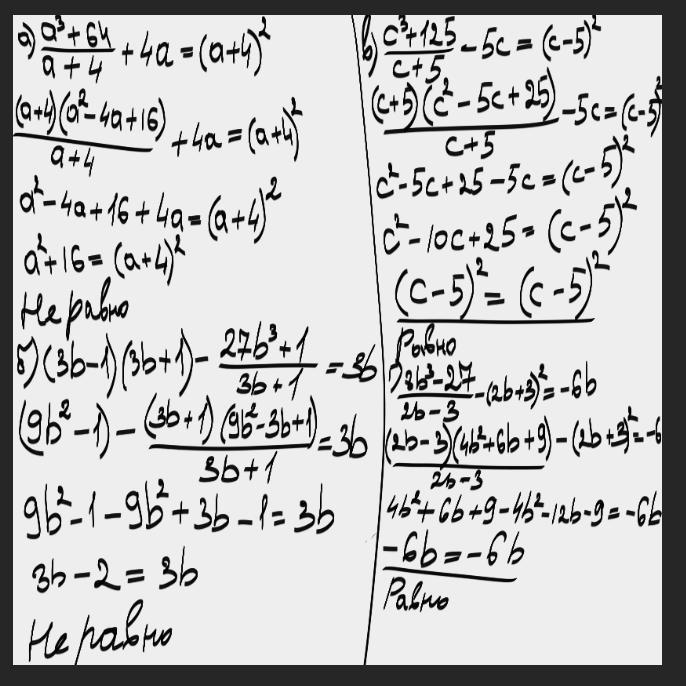 а) (a³+64)/(a+4) + 4a = (a+4)²
((a+4)(a²-4a+16))/(a+4) + 4a = (a+4)²
a²-4a+16+4a=(a+4)²
a²+16=(a+4)²
Не равно
б) (3b-1)(3b+1) - (27b³+1)/(3b+1) = 3b
(9b²-1) - ((3b+1)(9b²-3b+1))/(3b+1) = 3b
9b²-1-9b²+3b-1=3b
3b-2=3b
Не равно
в) (c³+125)/(c+5) - 5c = (c-5)²
((c+5)(c²-5c+25))/(c+5) - 5c = (c-5)²
c²-5c+25-5c=(c-5)²
c²-10c+25=(c-5)²
(c-5)²=(c-5)²
Равно
г) (8b³-27)/(2b-3) - (2b+3)² = -6b
((2b-3)(4b²+6b+9))/(2b-3) - (2b+3)² = -6
4b²+6b+9-4b²-12b-9=-6b
-6b=-6b
Равно